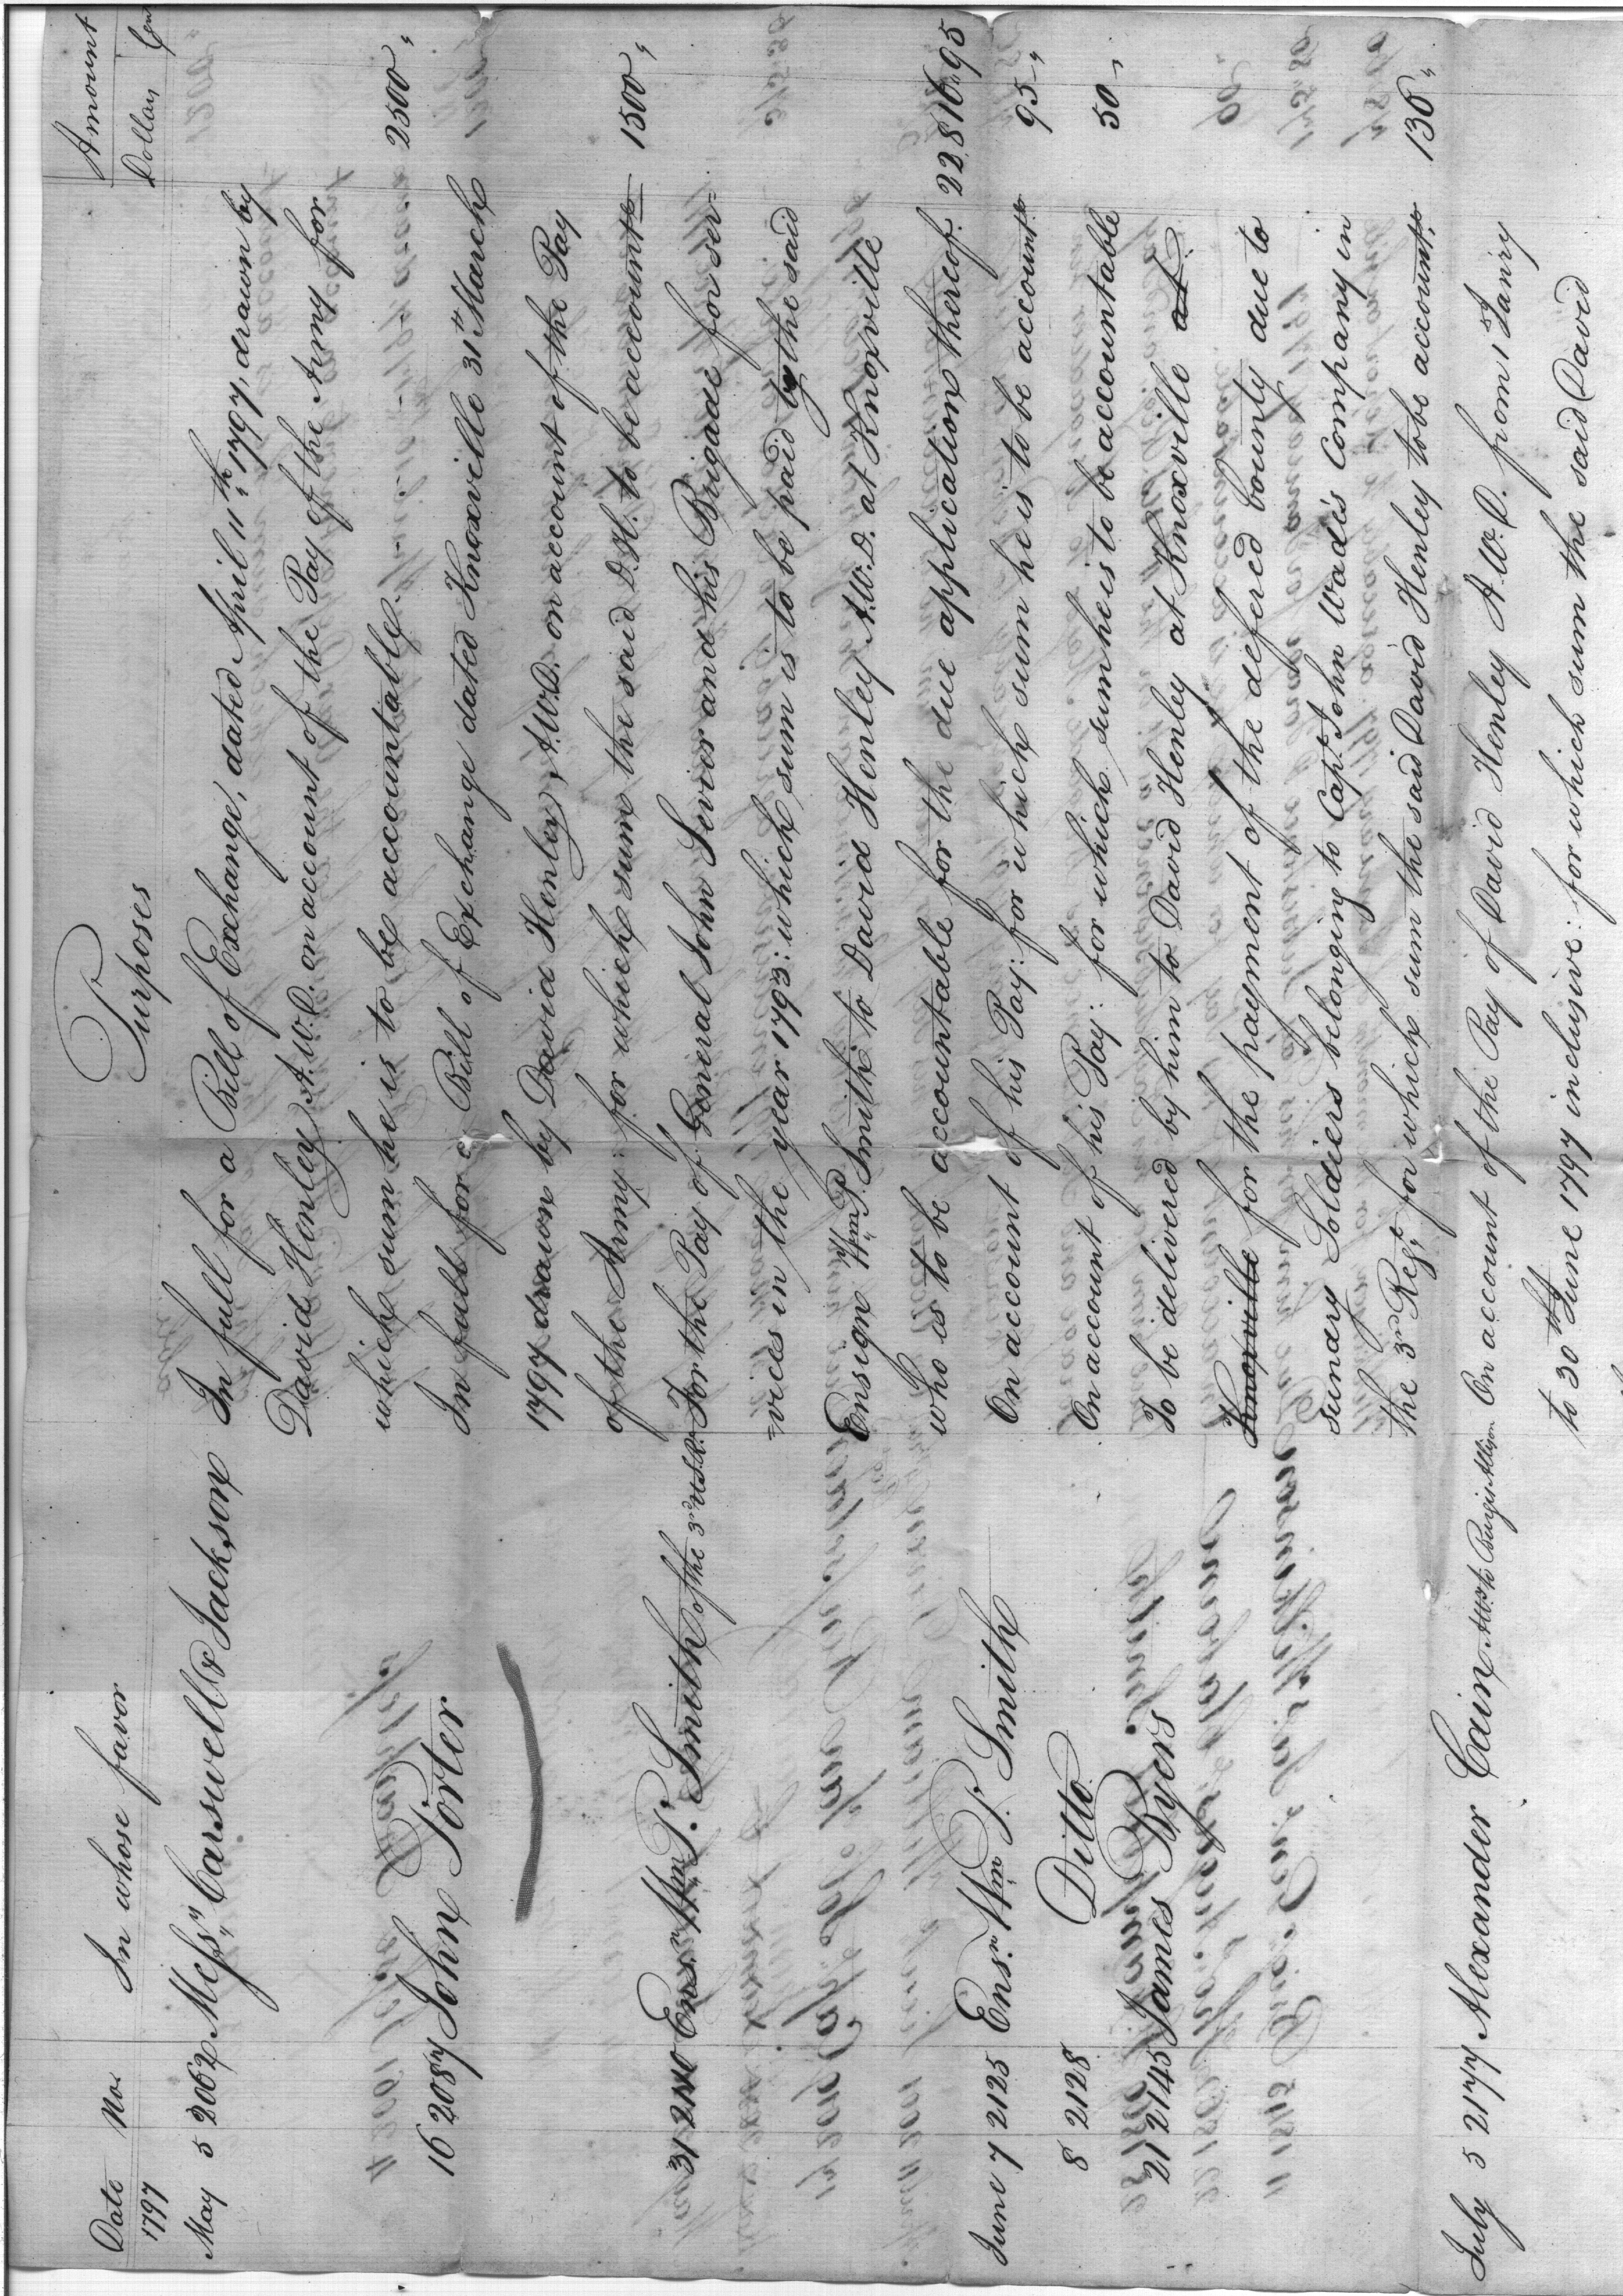 Date No. In whose favor Purposes Amount
1797 Dollars Cents
May 5 2062 Messrs Carswell & Jackson In full for a Bill of Exchange, dated April 11th 1797, drawn by
David Henley A.W.D. on account of the Pay of the Army for
which sum he is to be accountable. 2500 "
16 2087 John Porter In full for a Bill of Exchange dated Knoxville 31st March
1797 drawn by David Henley, A.W.D. on account of the Pay
of the Army: for which sum the said D.H. to be accountle 1500 "
31 2110 Ensn. Wm P. Smith of the 3rd U.S.R. For the Pay of General John Sevier and his Brigade for ser=
=vices in the year 1793: which sum is to be paid by the said
Ensign Wm P. Smith to David Henley A.W.D. at Knoxville
who is to be accountable for the due application thereof. 22816 " 95
June 7 2125 Ensn. Wm P. Smith On account of his Pay: for which sum he is to be accountle 95 "
8 2128 Ditto On account of his Pay: for which sum he is to be accountable 50 "
21 2145 James Byers To be delivered by him to David Henley at Knoxville at
Knoxville for the payment of the defered bounty due to
sundry Soldiers belonging to Capt. John Wade's Company in
the 3rd Regt. for which sum the said David Henley to be accountle 136 "
July 5 2177 Alexander Cain On account of the Pay of David Henley A.W.D. from 1st Janry
to 30th June 1797 inclusive: for which sum the said David